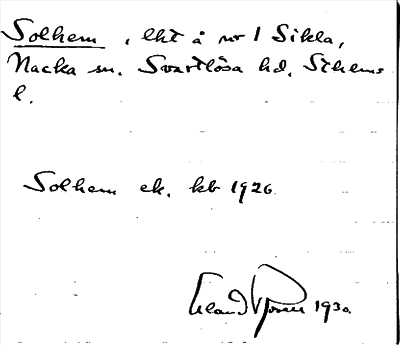 Solhem, lht å nr 1 Sikla,
Nacka sn. Svartlösa hd. Sthlms
l.
Solhem ek. kb 1926
1930.